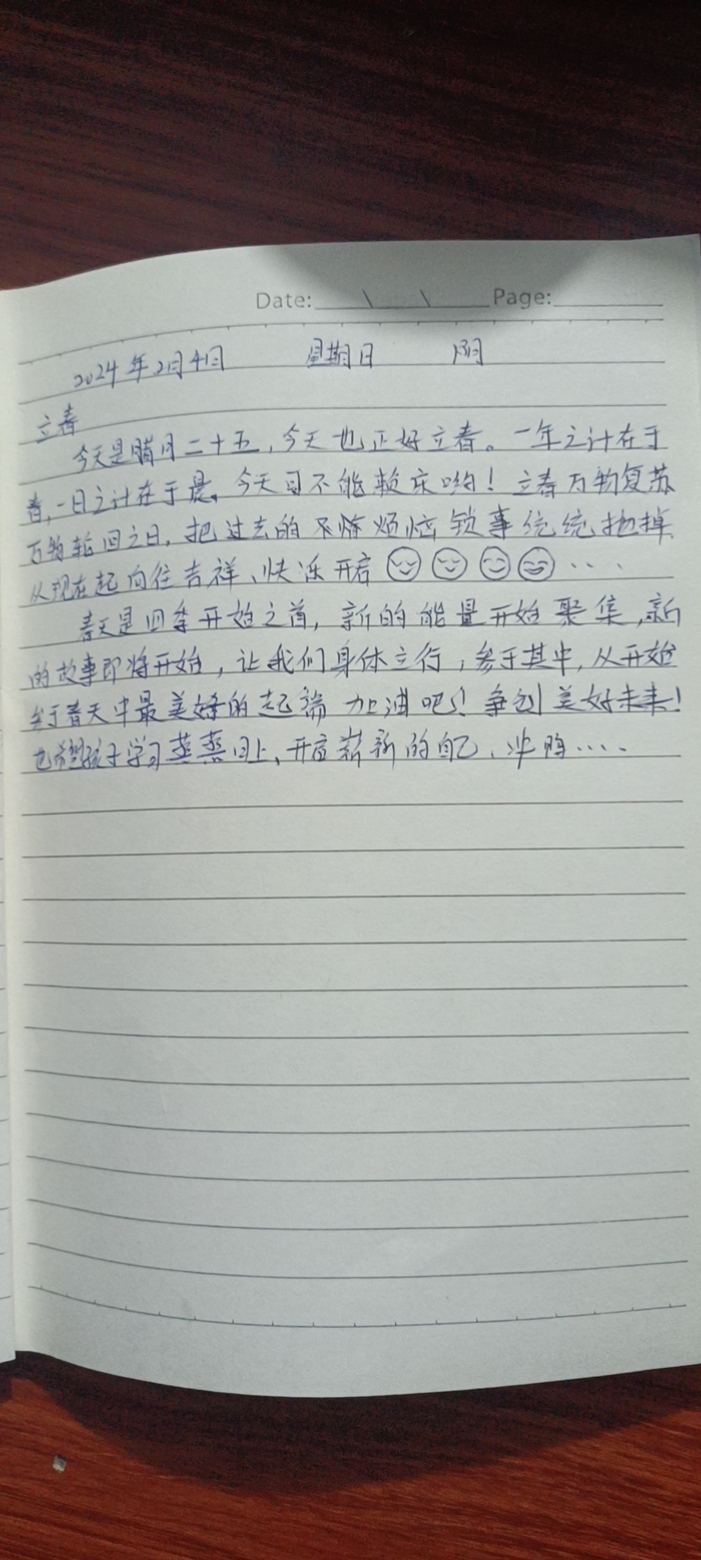 Date: \ \ Page:
2024年2月4日 星期日 阴
立春
今天是腊月二十五,今天也正好立春。一年之计在于
春,一日之计在于晨。今天可不能赖床哟!立春万物复苏
万物轮回之日,把过去的不烦烦恼锁事统统抛掉
从现在起向往吉祥、快乐开启😊😊😊😄····
春天是四季开始之首,新的能量开始聚集,新
的故事即将开始,让我们身体立行,参于其中,从开始
参于春天中最美好的起端 加油吧!争创美好未来!
也希望孩子学习蒸蒸日上、开启崭新的自己、冲鸭····